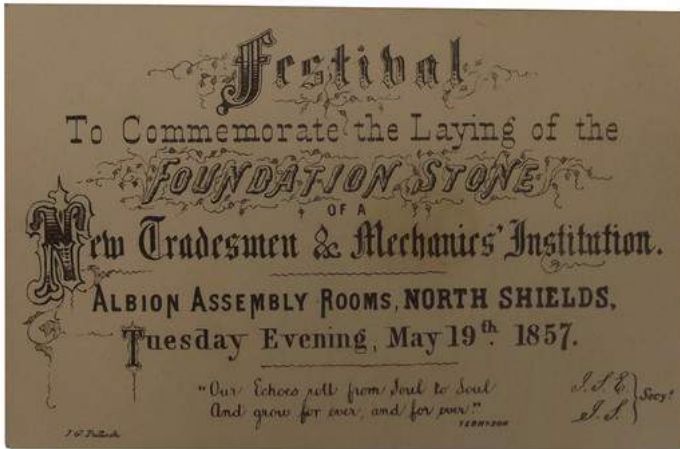 Festival
To Commemorate the Laying of the
FOUNDATION STONE
OF A
New Tradesmen & Mechanics' Institution.
ALBION ASSEMBLY ROOMS, NORTH SHIELDS,
Tuesday Evening, May 19th. 1857.
"Our Echoes roll from Soul to Soul
And grow for ever, and for ever."
TENNYSON
J.S.E.
J.S.
Secys